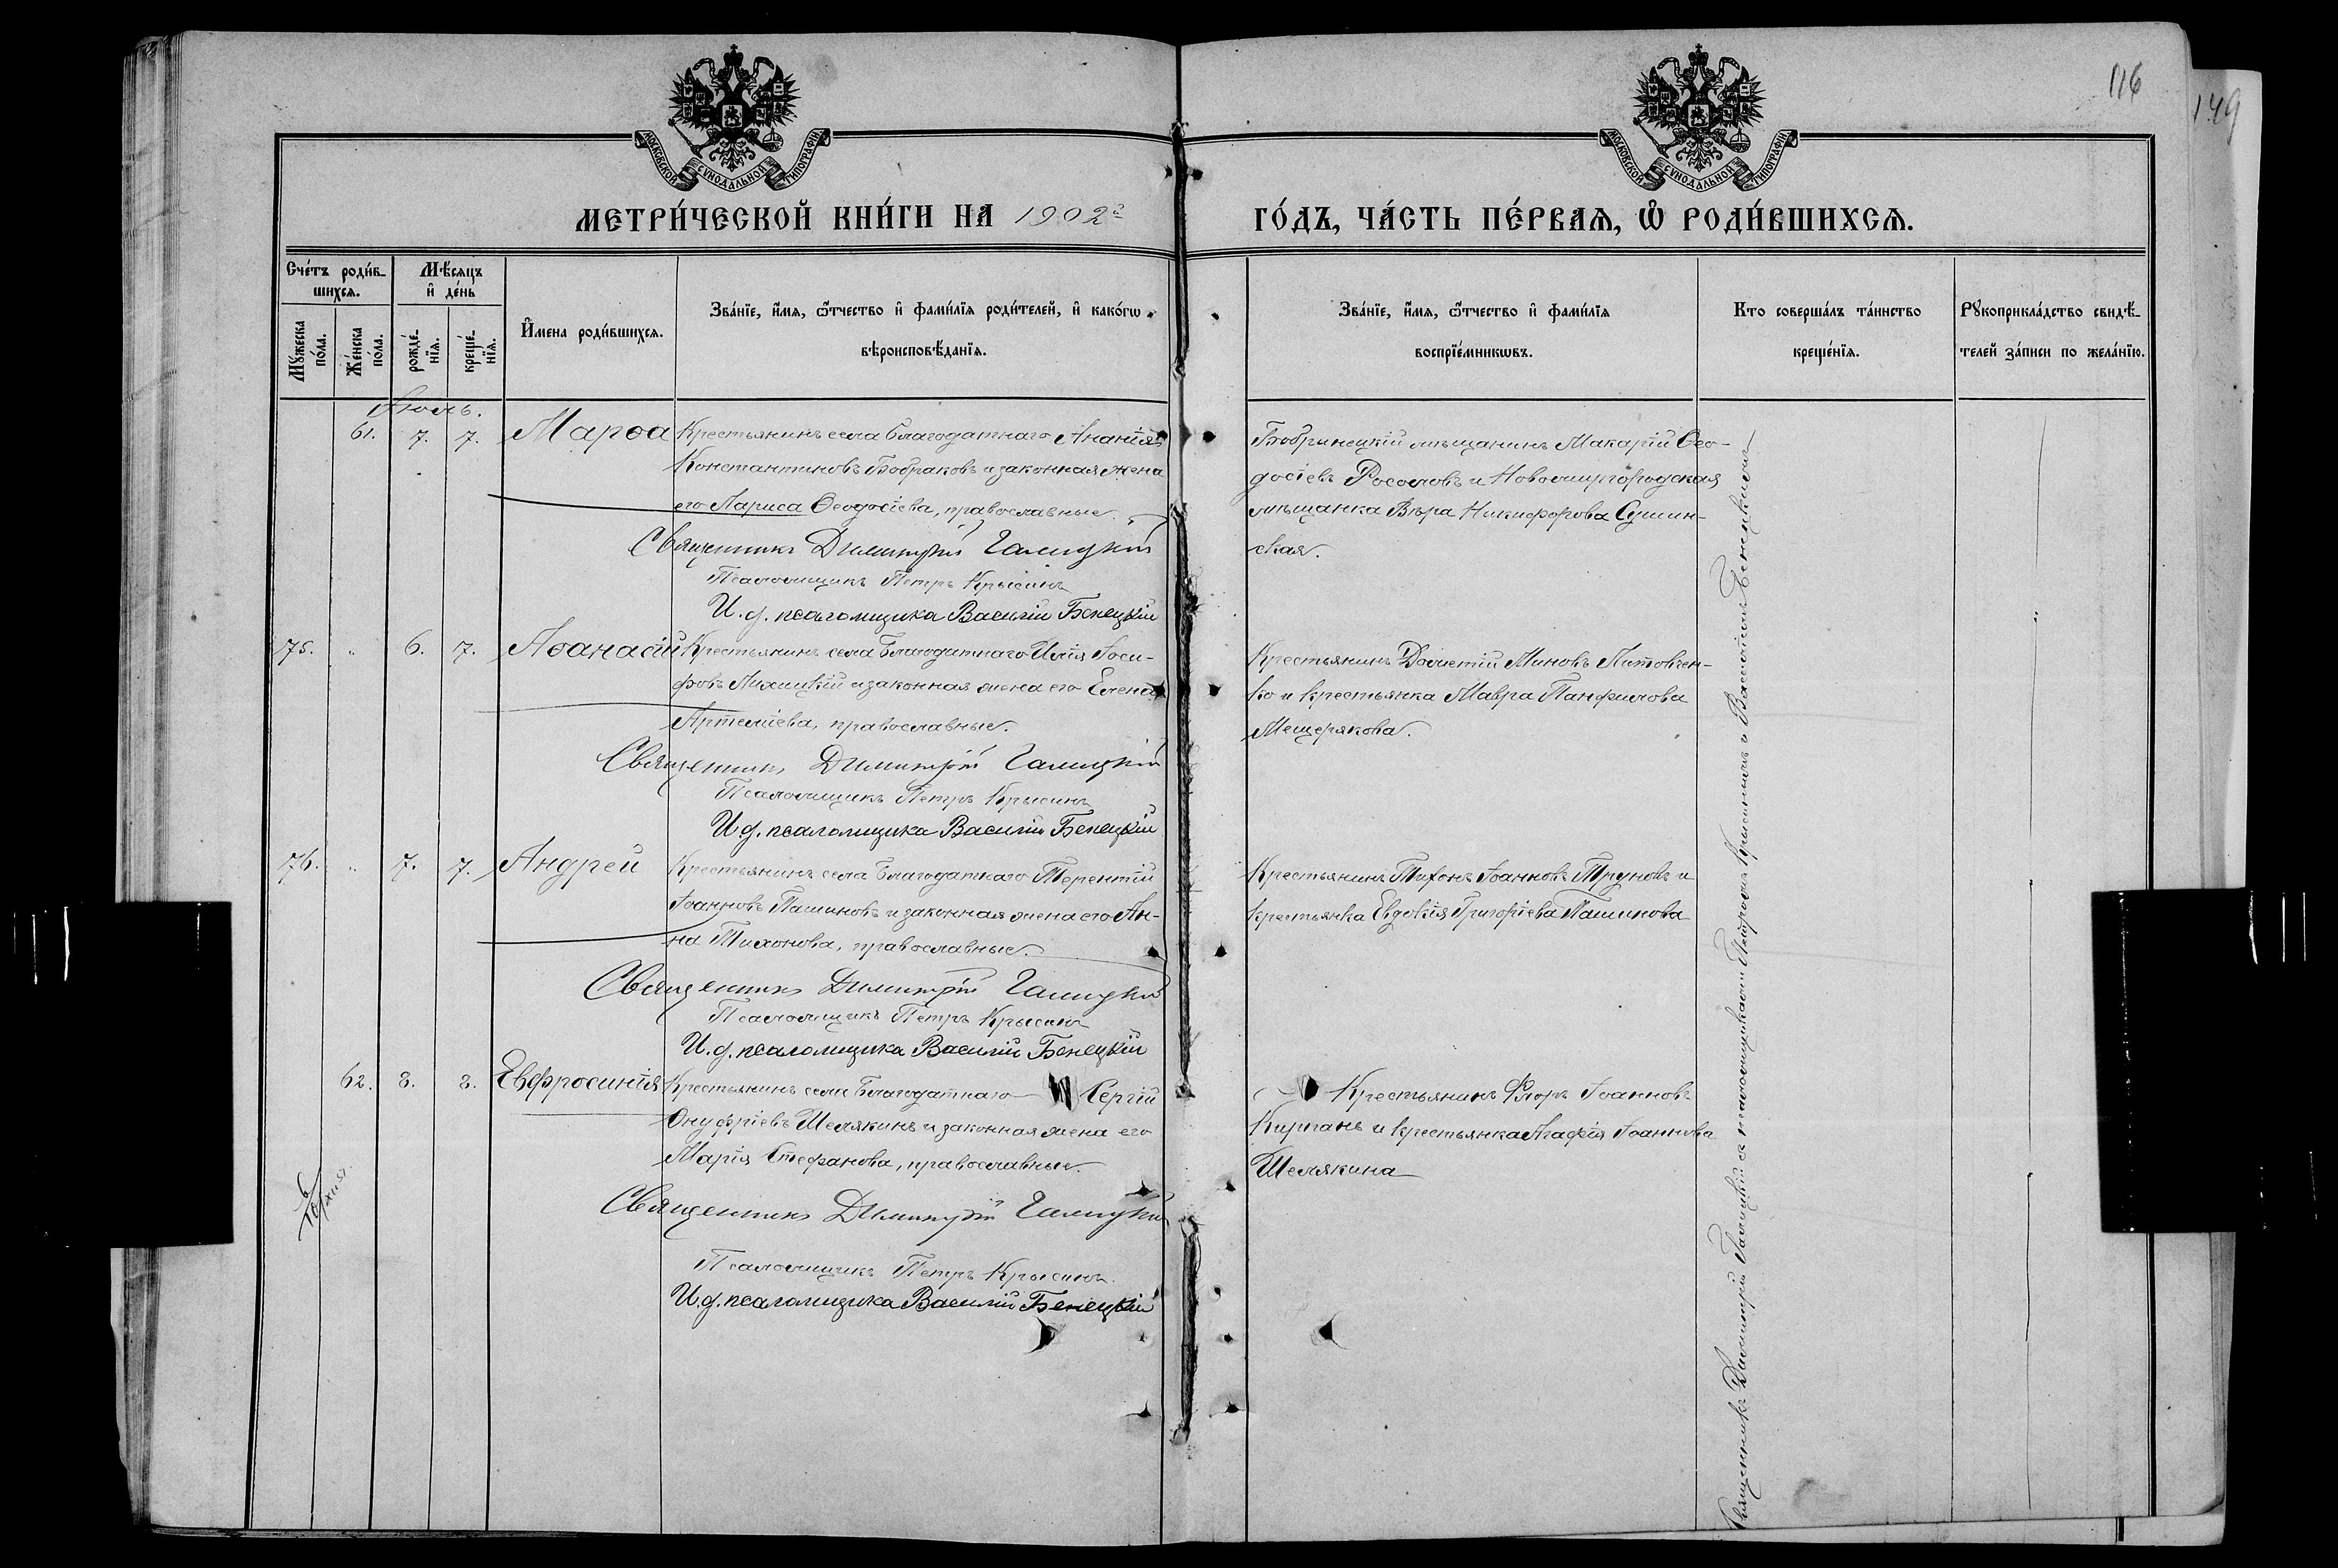 116
149
МОСКОВСКОЙ СѴНОДАЛЬНОЙ ТИПОГРАФІИ
МОСКОВСКОЙ СѴНОДАЛЬНОЙ ТИПОГРАФІИ
МЕТРИ́ЧЕСКОЙ КНИ́ГИ НА 1902й
ГО́ДЪ, ЧА́СТЬ ПЕ́РВАѦ, Ѡ҆ РОДИ́ВШИХСѦ.
Сче́тъ роди́в-
шихсѧ.
Мꙋ́жеска по́ла.
Же́нска по́ла.
Мѣ́сѧцъ
и҆ де́нь
рожде́-
нїѧ.
креще́-
нїѧ.
И҆мена роди́вшихсѧ.
Зва́нїе, и҆́мѧ, ѻ҆́тчество и҆ фами́лїѧ роди́телей, и҆ како́гѡ
вѣроисповѣ́данїѧ.
Зва́нїе, и҆́мѧ, ѻ҆́тчество и҆ фами́лїѧ
воспрїе́мникѡвъ.
Кто соверша́лъ та́инство
креще́нїѧ.
Рꙋкоприкла́дство свидѣ́-
телей за́писи по жела́нїю.
Іюль.
61. 7. 7. Марѳа Крестьянинъ села Благодатнаго Ананія
Константиновъ Бобраковъ и законная жена
его Лариса Ѳеодосіева, православные.
Священникъ Димитрій Галицкій
Псаломщикъ Петръ Крысинъ
И. д. псаломщика Василій Бенецкій
Бобринецкій мѣщанинъ Макарій Ѳео-
досіевъ Росоловъ и Новомиргородская
мѣщанка Вѣра Никифорова Сушин-
ская.
75. " 6. 7. Аѳанасій Крестьянинъ села Благодатнаго Илія Іоси-
фовъ Лихицкій и законная жена его Елена
Артеміева, православные.
Священникъ Димитрій Галицкій
Псаломщикъ Петръ Крысинъ
И д. псаломщика Василій Бенецкій
Крестьянинъ Дометій Миновъ Литовчен-
ко и крестьянка Мавра Панфилова
Мещерякова.
76. " 7. 7. Андрей Крестьянинъ села Благодатнаго Терентій
Іоанновъ Пашиновъ и законная жена его Ан-
на Тихонова, православные.
Священникъ Димитрій Галицкій
Псаломщикъ Петръ Крысинъ
И. д. псаломщика Василій Бенецкій
Крестьянинъ Тихонъ Іоанновъ Труновъ и
крестьянка Евдокія Григоріева Пашинова
62. 8. 8. Евфросинія Крестьянинъ села Благодатнаго Сергій
Онуфріевъ Шелякинъ и законная жена его
Марія Стефанова, православные.
Священникъ Димитрій Галицкій
Псаломщикъ Петръ Крысинъ.
И. д. псаломщика Василій Бенецкій
Крестьянинъ Флоръ Іоанновъ
Кирганъ и крестьянка Агафія Іоаннова
Шелякина
Священникъ Димитрій Галицкій съ псаломщиками Петромъ Крысинымъ и Василіемъ Бенецкимъ